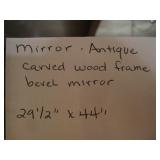 mirror. Antique
carved wood frame
bevel mirror
29 1/2" x 44"